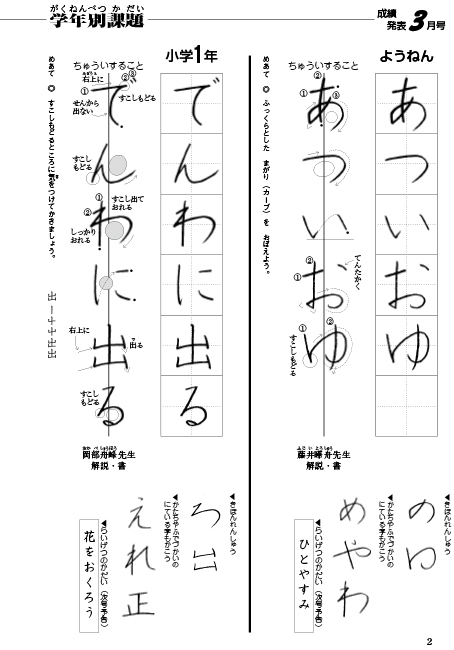 がくねんべつ か だい
学年別課題
成績
発表3月号
ようねん
あついおゆ
ちゅういすること
①②③
あついおゆ
てんたかく
①②
①②
すこしもどる
めあて ◎ ふっくらとした まがり(カーブ)を おぼえよう。
ふじ い とうしゅう
藤井嶝舟先生
解説・書
◀きほんれんしゅう
のゆ
◀かたちやふでづかいの
にている字もかこう
めやわ
◀らいげつのかだい(次号予告)
ひとやすみ
小学1年
でんわに出る
ちゅういすること
みぎうえ
右上に
①②③
すこしもどる
せんから
出ない
でんわに出る
すこし
もどる
①②
すこし出て
おれる
しっかり
おれる
右上に
で
出る
すこし
もどる
めあて ◎ すこしもどるところに気をつけてかきましょう。
出 一 十 屮 出 出
おか べ しゅうほう
岡部舟峰先生
解説・書
◀きほんれんしゅう
ろ出
◀かたちやふでづかいの
にている字もかこう
えれ正
◀らいげつのかだい(次号予告)
花をおくろう
2